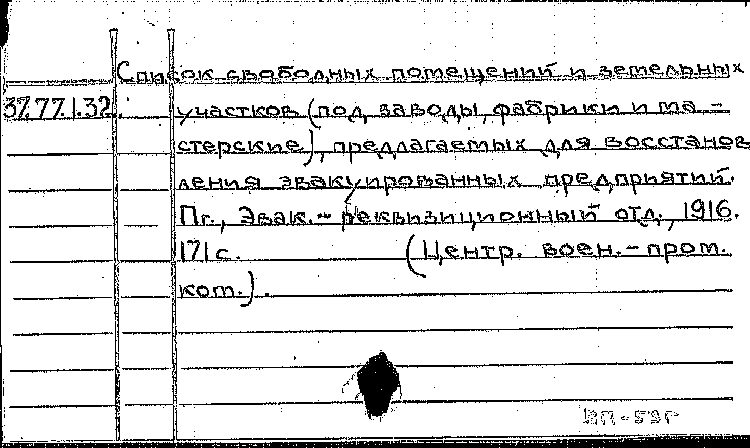 Список свободных помещений и земельных
37.77.1.32. участков (под заводы, фабрики и ма-
стерские), предлагаемых для восстанов
ления эвакуированных предприятий.
Пг., Эвак.-реквизиционный отд., 1916.
171 с. (Центр. воен.-пром.
ком.).
ВП-59г